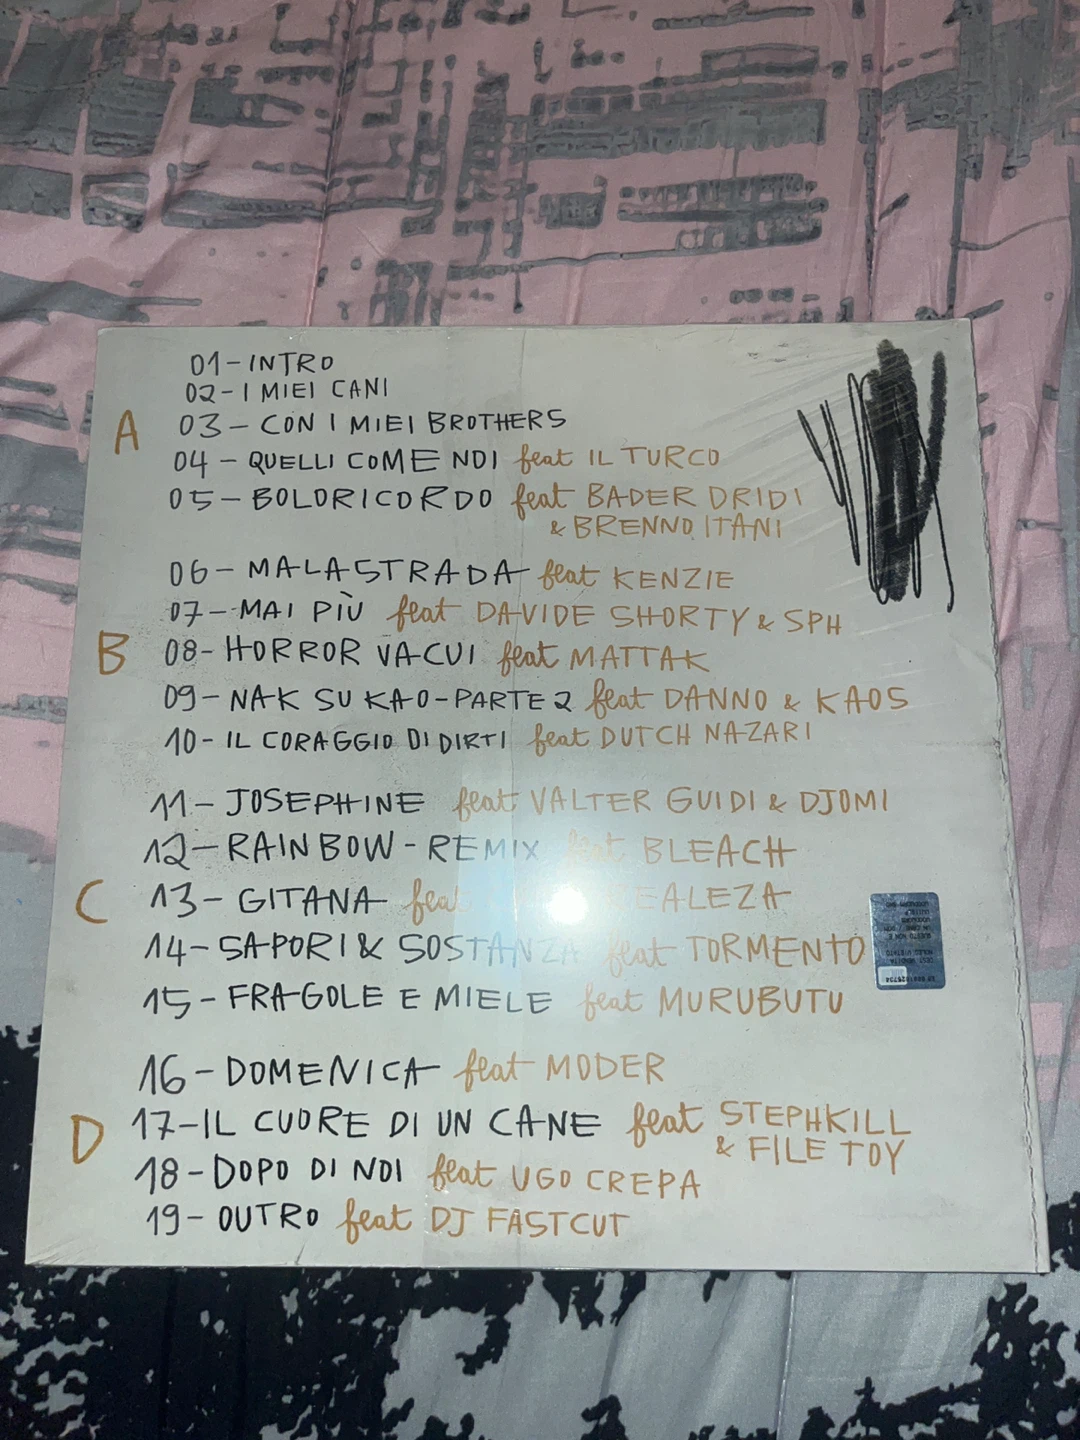 01-INTRO
02-I MIEI CANI
A
03-CON I MIEI BROTHERS
04-QUELLI COME NOI feat IL TURCO
05-BOLORICORDO feat BADER DRIDI
& BRENNO ITANI
06-MALASTRADA feat KENZIE
07-MAI PIÙ feat DAVIDE SHORTY & SPH
B
08-HORROR VACUI feat MATTAK
09-NAK SU KAO-PARTE 2 feat DANNO & KAOS
10-IL CORAGGIO DI DIRTI feat DUTCH NAZARI
11-JOSEPHINE feat VALTER GUIDI & DJOMI
12-RAINBOW-REMIX feat BLEACH
C
13-GITANA feat
14-SAPORI & SOSTANZA feat TORMENTO
15-FRAGOLE E MIELE feat MURUBUTU
16-DOMENICA feat MODER
D
17-IL CUORE DI UN CANE feat STEPHKILL
& FILE TOY
18-DOPO DI NOI feat UGO CREPA
19-OUTRO feat DJ FASTCUT